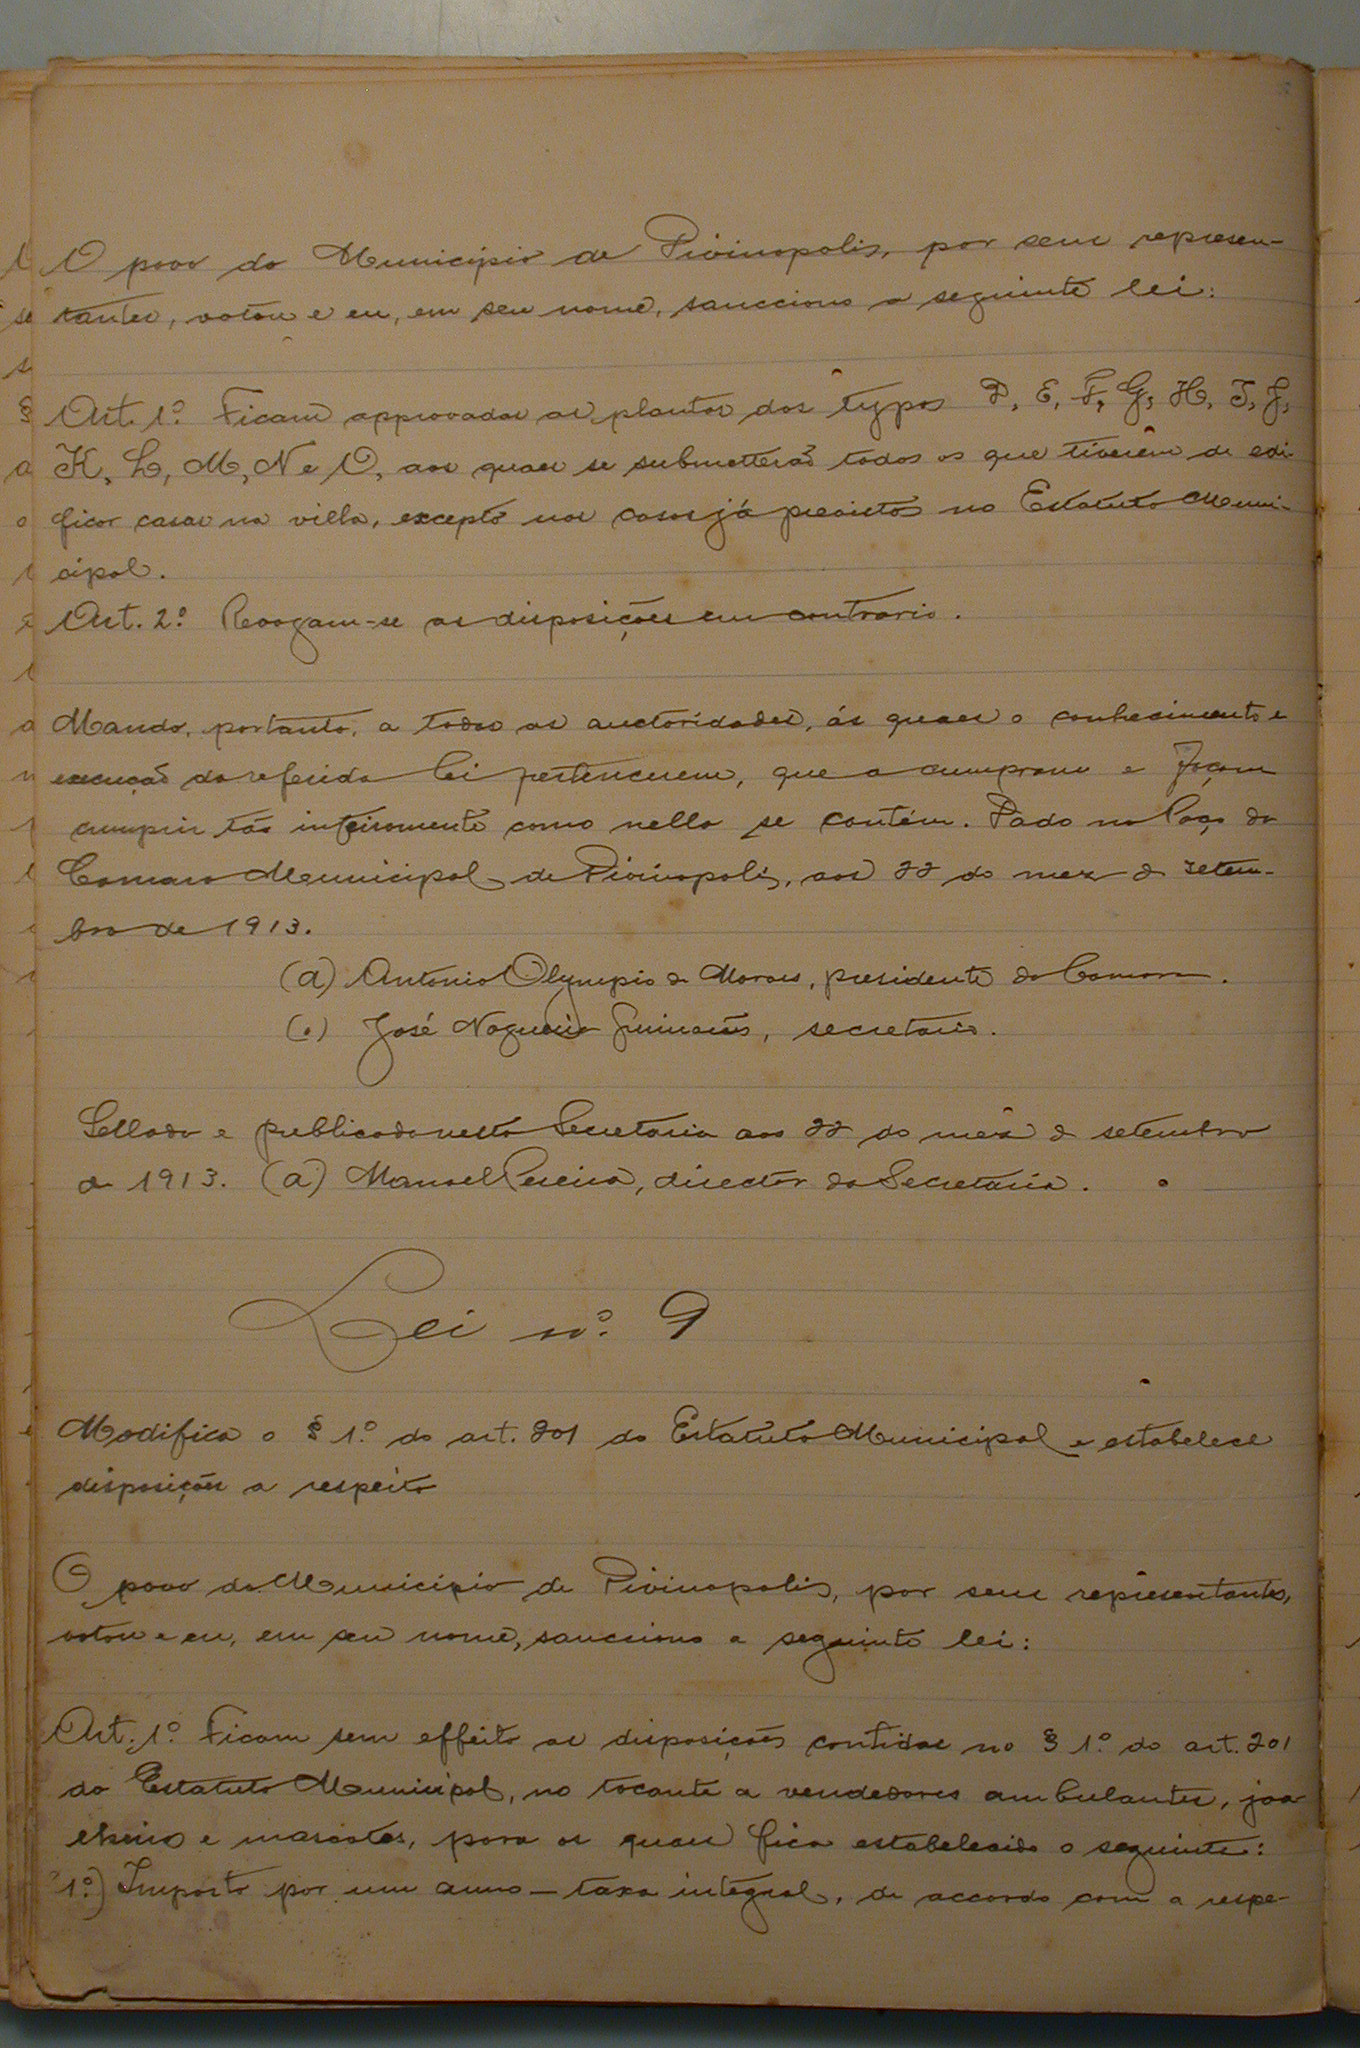 O povo do Municipio de Divinopolis, por seus represen-
tantes, votou e eu, em seu nome, sancciono a seguinte lei:
Art. 1.º Ficam approvadas as plantas dos typos D, E, F, G, H, I, J,
K, L, M, N e O, aos quaes se submetterão todos os que tiverem de edi-
ficar casas na villa, excepto nos casos já previstos no Estatuto Muni-
cipal.
Art. 2.º Revogam-se as disposições em contrario.
Mando, portanto, a todas as auctoridades, ás quaes o conhecimento e
execução da referida lei pertencerem, que a cumpram e façam
cumprir tão inteiramente como nella se contém. Dado no Paço da
Camara Municipal de Divinopolis, aos 22 do mez de setem-
bro de 1913.
(a) Antonio Olympio de Moraes, presidente da Camara.
(a) José Nogueira Guimarães, secretario.
Sellada e publicada nesta Secretaria aos 22 do mez de setembro
de 1913. (a) Manoel Pereira, director da Secretaria.
Lei n.º 9
Modifica o § 1.º do art. 201 do Estatuto Municipal e estabelece
disposições a respeito
O povo do Municipio de Divinopolis, por seus representantes,
votou e eu, em seu nome, sancciono a seguinte lei:
Art. 1.º Ficam sem effeito as disposições contidas no § 1.º do art. 201
do Estatuto Municipal, no tocante a vendedores ambulantes, joa-
lheiros e mascates, para os quaes fica estabelecido o seguinte:
1.º) Imposto por um anno — taxa integral, de accordo com a respe-